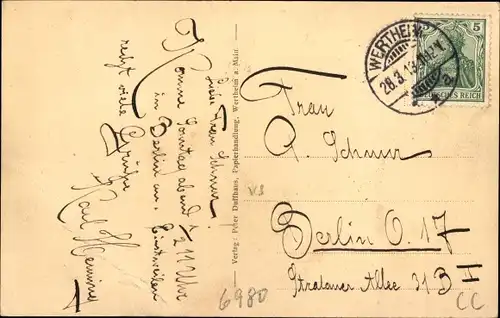 Liebe Frau Schnur!
Komme Sonntag abend 1/2 11 Uhr
in Berlin an. Einstweilen
recht viele Grüße
Karl
Verlag: Peter Duffhaus, Papierhandlung, Wertheim a. Main.
WERTHEIM
28.3.13
5
DEUTSCHES REICH
Frau
A. Schnur
VS
Berlin O. 17
Stralauer Allee 21 B II
6980
CC